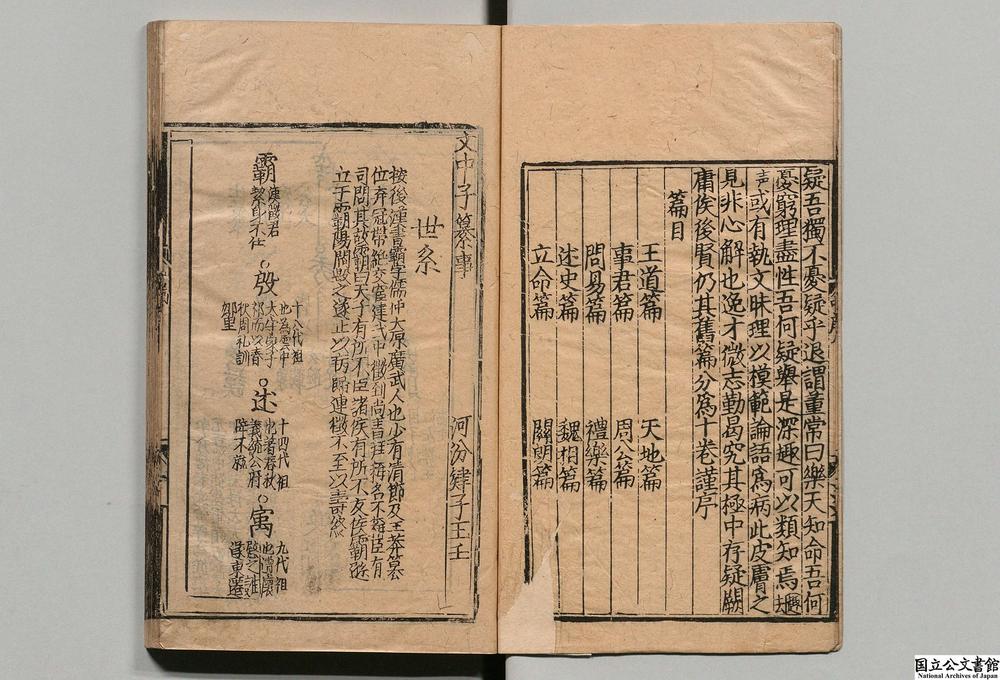 疑吾獨不憂疑乎退謂董常曰樂天知命吾何
憂窮理盡性吾何疑舉是深趣可以類知焉
声或有執文昧理以模範論語爲病此皮膚之
見非心解也逸才微志勤曷究其極中存疑闕
庸俟後賢仍其舊篇分爲十卷謹序
篇目
王道篇 天地篇
事君篇 周公篇
問易篇 禮樂篇
述史篇 魏相篇
立命篇 關朗篇
文中子纂事 河汾肄子王壬
世系
按後漢書霸字儒仲太原廣武人也少有清節及王莽篡
位弃冠帶絶交宦建武中徵到尚書拜称名不称臣有
司問其故霸曰天子有所不臣諸侯有所不友侯霸遜
立于霸陽間毁之遂止以病歸連徵不至以壽终
霸
漢徵君
絜身不仕
殷
十八代祖
也為雲中
太守家于
祁而以春
秋周礼訓
郷里
述
十四代祖
也著春秋
義統公府
辟不就
寓
九代祖
也遭懷
愍之難
遂東遷
国立公文書館
National Archives of Japan